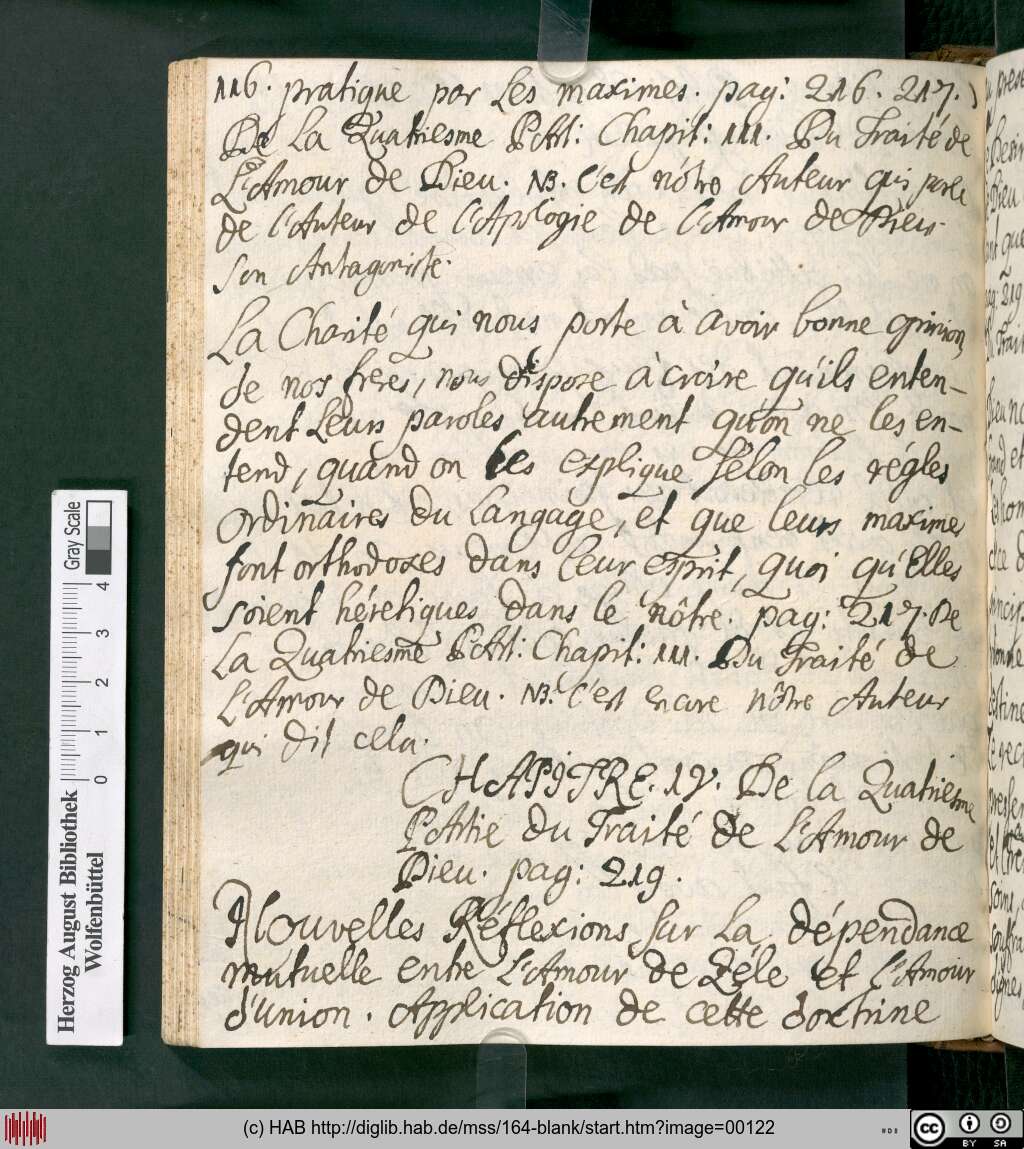 116. pratique par Les maximes. pag: 216. 217.
De La Quatriesme PArt: Chapit: 111. Du Traité de
L'Amour de Dieu. NB. C'est nôtre Auteur qui parle
de l'Auteur de l'Apologie de l'Amour de Dieu.
Son Antagoniste.
La Charité qui nous porte à avoir bonne opinion
de nos freres, nous dispose à croire qu'ils enten-
dent Leurs paroles autrement qu'on ne les en-
tend, quand on les explique selon les régles
Ordinaires du langage, et que leurs maximes
sont orthodoxes dans leur esprit, quoi qu'Elles
soient héretiques dans le nôtre. pag: 217. De
La Quatriesme PArt: Chapit: 111. Du Traité de
L'Amour de Dieu. NB. C'est encore nôtre Auteur
qui dit cela.
CHAPITRE. 1V. De la Quatriesme
PArtie du Traité de L'Amour de
Dieu. pag: 219.
Nouvelles Réflexions sur La dépendance
mutuelle entre L'Amour de Zéle et l'Amour
d'union. Application de cette doctrine
Gray Scale
4
3
2
1
0
Herzog August Bibliothek
Wolfenbüttel
(c) HAB http://diglib.hab.de/mss/164-blank/start.htm?image=00122
cc
BY SA